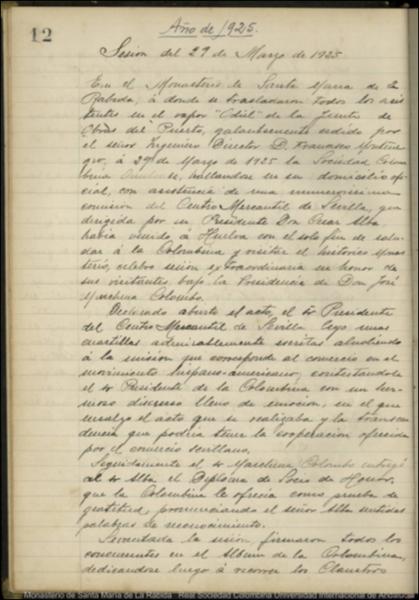 12
Año de 1925.
Sesion del 29 de Marzo de 1925
En el Monasterio de Santa Maria de la
Rabida, á donde se trasladaron todos los asis
tentes en el vapor "Odiel" de la Junta de
Obras del Puerto, galantemente cedido por
el señor Ingeniero Director D. Francisco Montene
gro, á 29 de Marzo de 1925 la Sociedad Colom
bina Onubense, hallandose en su domicilio ofi
cial, con asistencia de una numerosisima
comision del Centro Mercantil de Sevilla, que
dirigida por su Presidente Don Cesar Alba
habia venido á Huelva con el solo fin de salu
dar á la Colombina y visitar el historico Monas
terio, celebro sesion extraordinaria en honor de
sus visitantes bajo la Presidencia de Don José
Marchena Colombo.
Declarado abierto el acto, el Sr Presidente
del Centro Mercantil de Sevilla leyo unas
cuartillas admirablemente escritas aludiendo
á la mision que corresponde al comercio en el
movimiento hispano-americano, contestandole
el Sr Presidente de la Colombina con un her
moso discurso lleno de emocion, en el que
ensalzo el acto que se realizaba y la transcen
dencia que podria tener la cooperacion ofrecida
por el comercio sevillano.
Seguidamente el Sr Marchena Colombo entregó
al Sr Alba el Diploma de Socio de Honor,
que la Colombina le ofrecia como prueba de
gratitud, pronunciando el señor Alba sentidas
palabras de reconocimiento.
Levantada la sesión firmaron todos los
concurrentes en el Album de la Colombina,
dedicandose luego á recorrer los Claustros
Monasterio de Santa María de La Rábida Real Sociedad Colombina Universidad Internacional de Andalucía